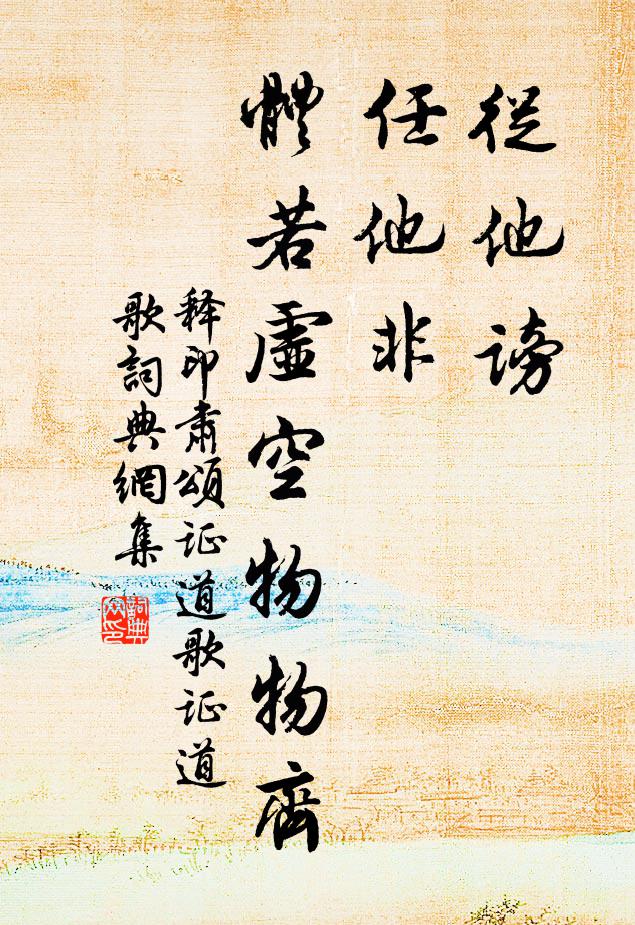 從他謗
任他非
體若虛空物物齊
释印肃頌证道歌证道
歌詞典網集
詞典
网印